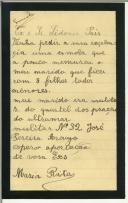 Ex e Sr Sidonio Pais
Venho pedir a vossa excelen
cia uma esmola que
a pouco
meu marido que ficei
com 3 filhos todos
menores.
meu marido era
do quartel das praças
do ultramar
militar Nº 32 José
Pereira Araujo
espero
de vosa Exª
Maria Rita